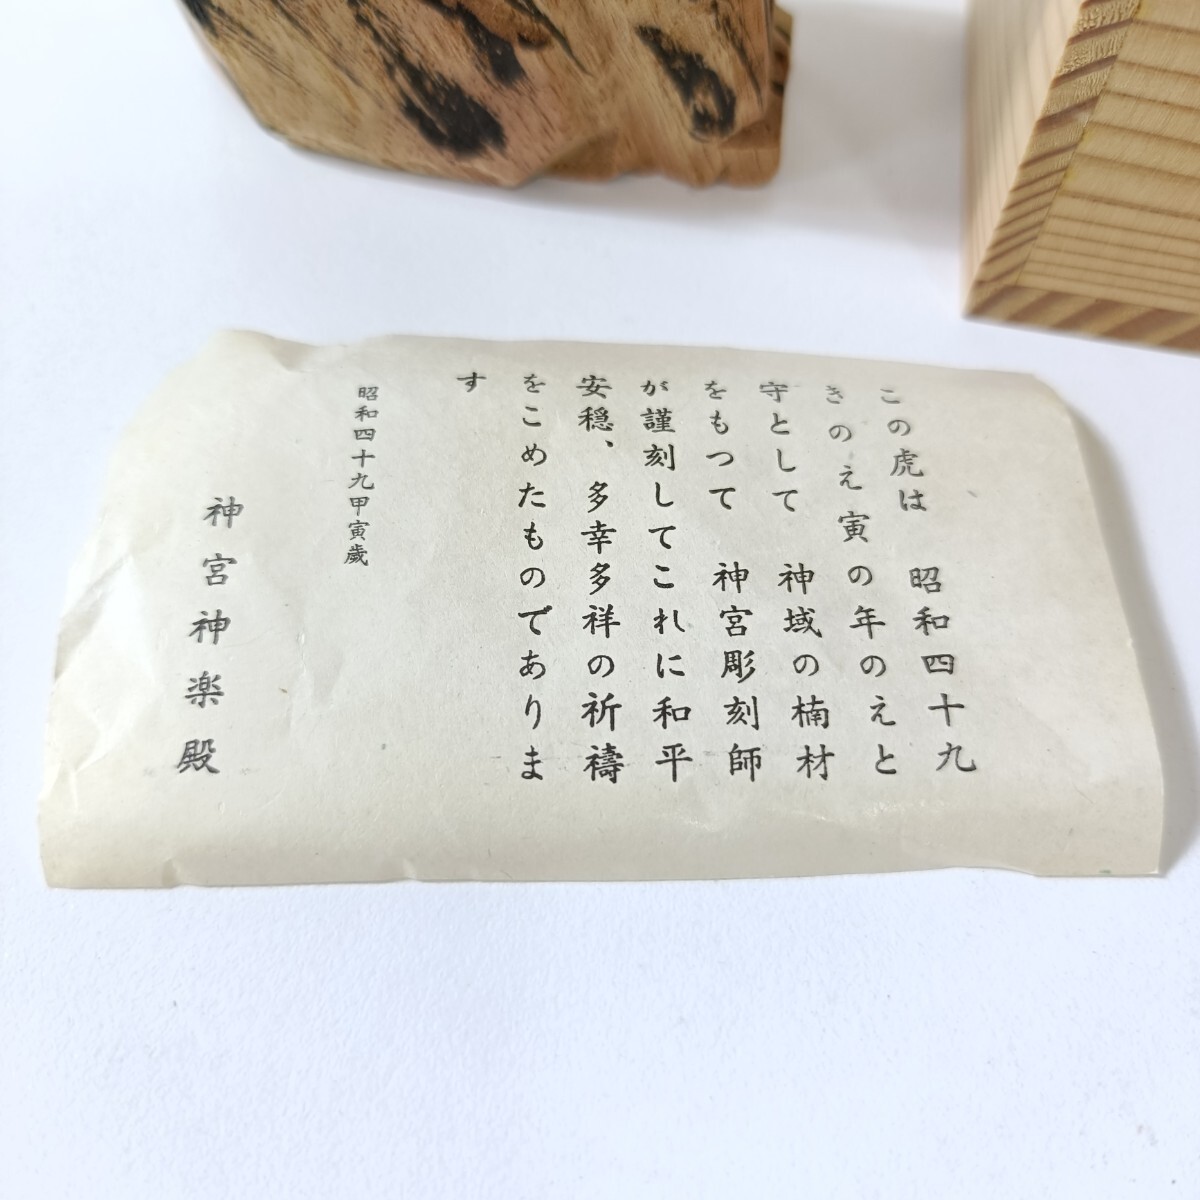 この虎は　昭和四十九
きのえ寅の年のえと
守として　神域の楠材
をもつて　神宮彫刻師
が謹刻してこれに和平
安穏、多幸多祥の祈禱
をこめたものでありま
す
昭和四十九甲寅歳
神宮神楽殿